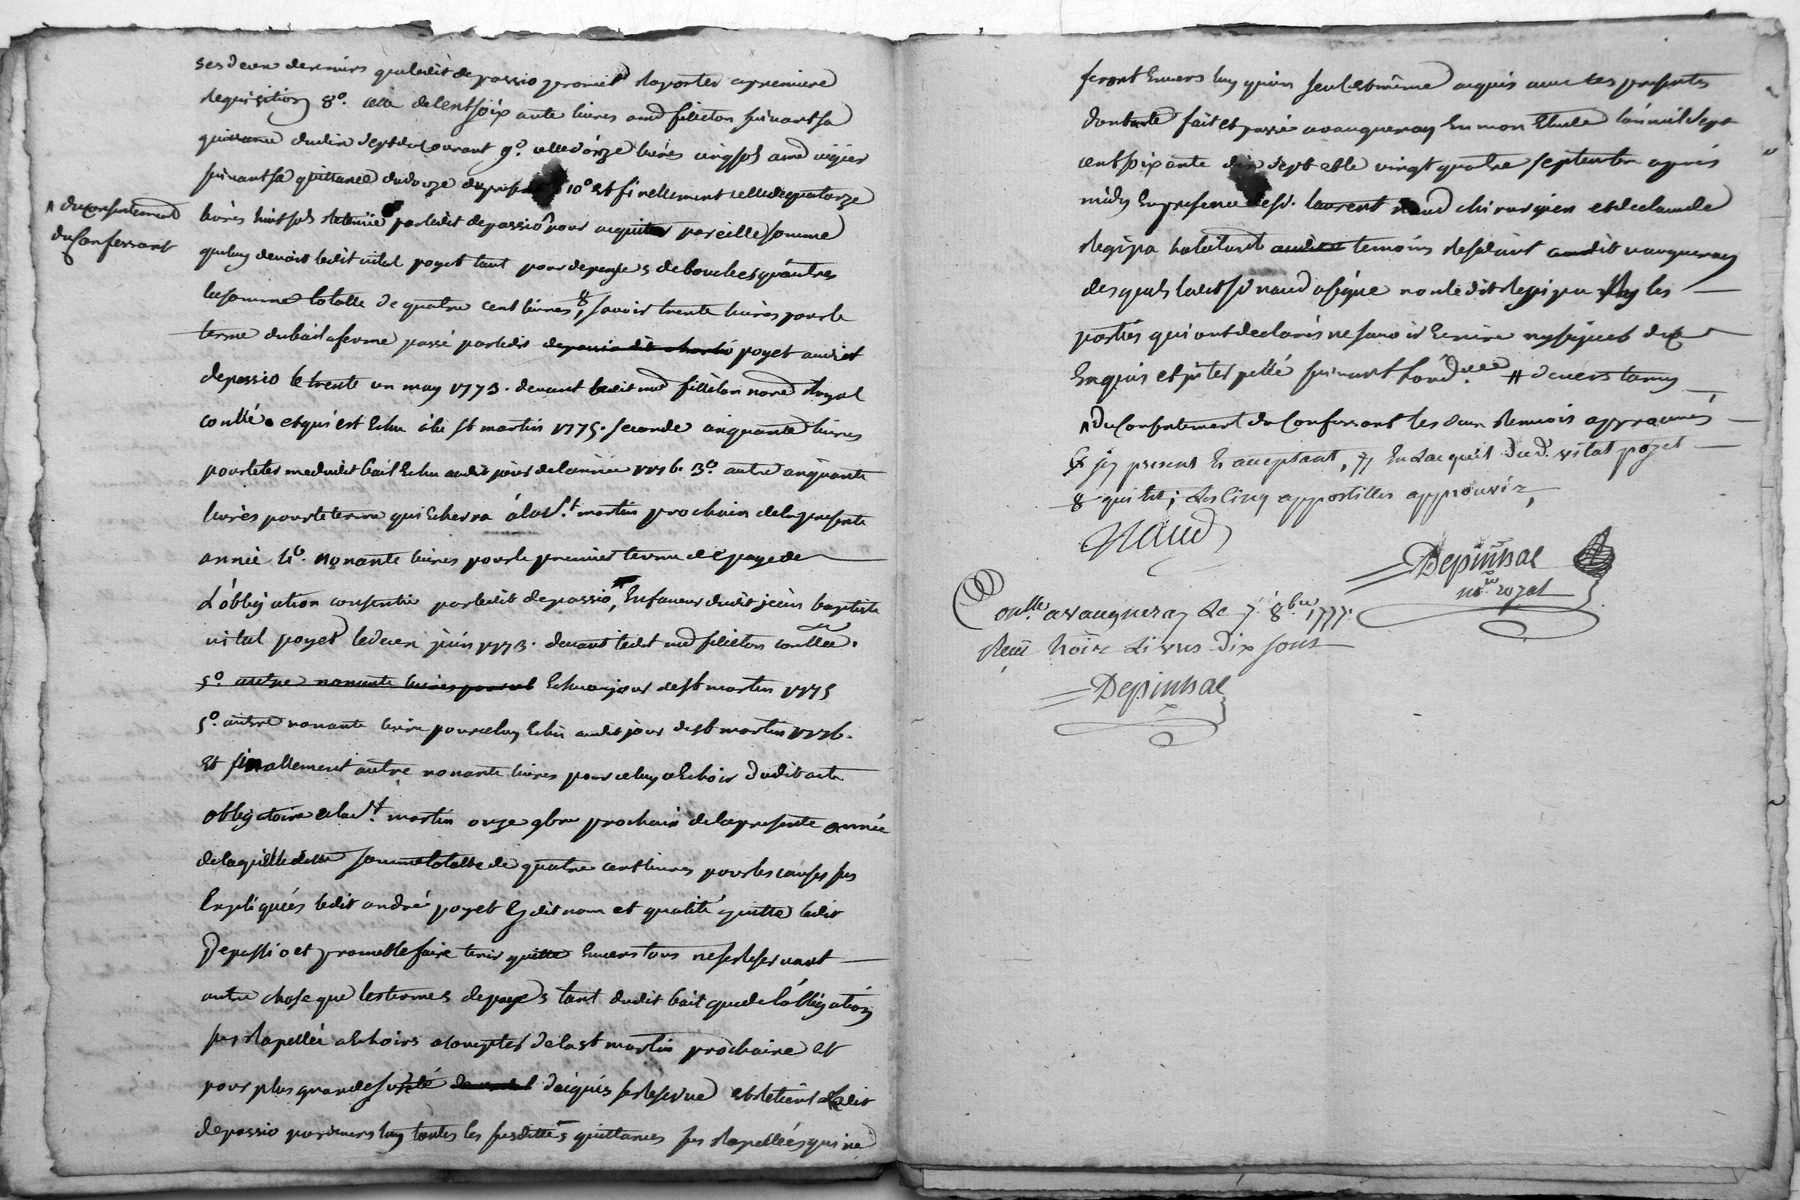 ses deux derniers que ledit depassio promet raporter a premiere
requisition 8°. celle de cent soix ante livres aud filleton suivant sa
quittance du dix sept du courant 9°. celle d'onze livres cinq sols aud
suivant sa quittance du douze du present 10° et finellement celle de quatorze
livres huit sols retenüe par ledit depassio pour acquitter pareille somme
que luy devoit ledit vital poyet tant pour depenses de bouche qu'autres
la somme totalle de quatre cent livres, 8 savoir trente livres pour le
terme du bail a ferme passé par ledit depassio dit poyet audit
depassio le trente un may 1773. devant ledit me filleton nore royal
conllé. et qui est echu a la st martin 1775. seconde cinquante livres
pour le terme dudit bail echu audit jour de l'année 1776. 3°. autre cinquante
livres pour le terme qui echerra à la st. martin prochain de la presente
année 4°. nonante livres pour le premier terme de paye de
L'obligation consentie par ledit depassio, En faveur dudit jean baptiste
vital poyet le deux juin 1773. devant ledit me filleton conllée.
5°. autre nonante livres pour cel Echu au jour de st martin 1775
5°. autre nonante livre pour celuy Echu audit jour de st martin 1776.
Et finallement autre nonante livres pour celuy a Echoir dudit acte
obligatoire a la st. martin onze 9bre prochain de la presente année
de laquelle somme totalle de quatre cent livres pour les causes sus
Expliquées ledit andré poyet Esdit nom et qualité quitte ledit
Depassio et promet le faire tenir quitte Envers tous ne se reservant
autre chose que les termes de payes tant dudit bail que de l'obligation
sus rapellée a echoirs a compter de la st martin prochaine et
pour plus grande sureté d'aiquis se reserve et retient ledit
depassio par devers luy toutes les susdittes quittances sus rapellées qui ne
^ du consentement
du Confessant
feront Envers luy qu'un seul et même acquis avec les presentes
dont acte fait et passé a vaugneray En mon Etude l'an mil sept
cent soix ante dix sept et le vingt quatre septembre après
midy En presence de sr. laurent naud chirurgien et de claude
regipa habitant temoins residant audit vaugneray
desquels ledit sr naud a signé non ledit regipa ny les
parties qui ont declarés ne savoir Ecrire ny signer de ce
Enquis et interpellé suivant l'ordce # devers tamy
^ Du Consentement du Confessant les deux renvois approuvés
present et acceptant, En l'acquit dud. vital poyet
8 qui est; Les Cinq appostilles approuvés,
Naud
Depinhac
nre. royal
Conlle. a vaugneray Le 7. 8bre 1777.
Receu trois Livres Dix sous
Depinhac